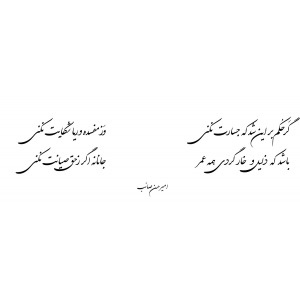 گر حکم بر این شد که جسارت نکنی
وز مفسده و ریا شکایت نکنی
باشد که ذلیل و خار گردی همه عمر
جانانه اگر ز حق صیانت نکنی
امیرحسن صائب